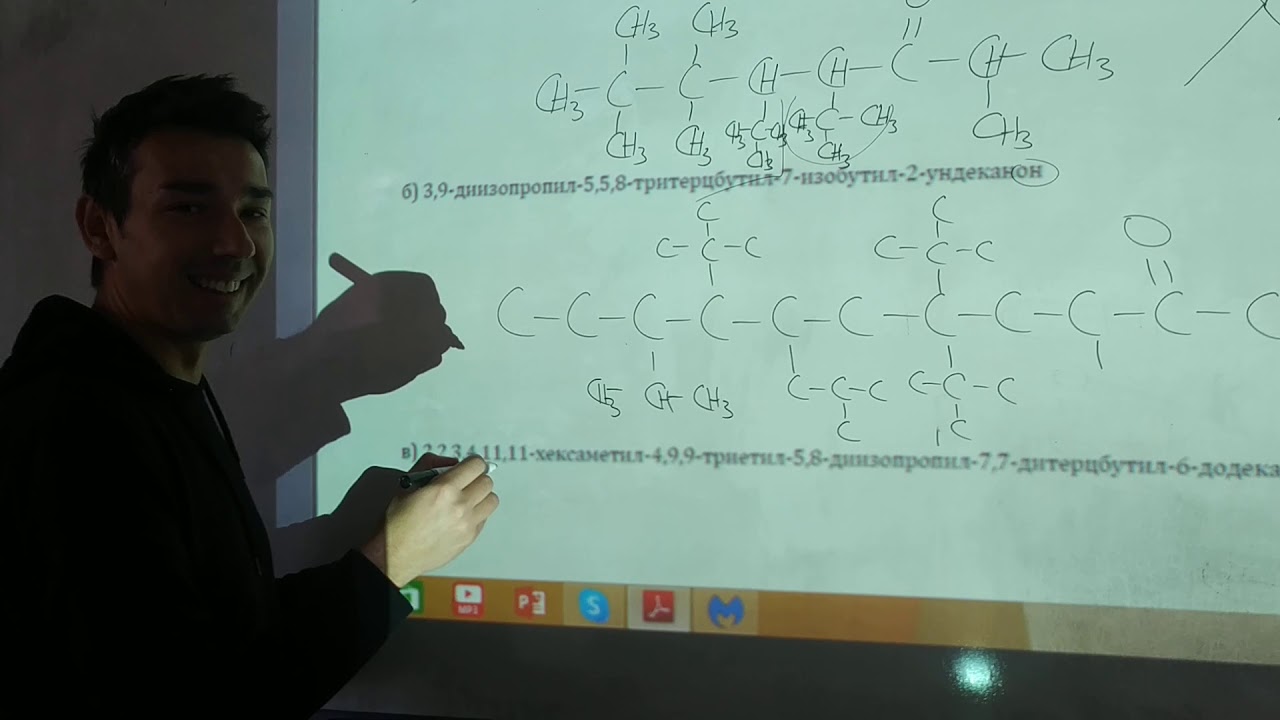 CH3 CH3 O
CH3 – C – C – CH – CH – C – CH – CH3
CH3 CH3 CH3 C CH3 CH3 C – CH3 CH3
CH3 CH3
б) 3,9-диизопропил-5,5,8-тритерцбутил-7-изобутил-2-ундеканон
C C O
C – C – C C – C – C
C – C – C – C – C – C – C – C – C – C – C
CH3 CH – CH3 C – C – C C – C – C
C C
в) 2,2,3,4,11,11-хексаметил-4,9,9-триетил-5,8-диизопропил-7,7-дитерцбутил-6-додека
MP3 P S